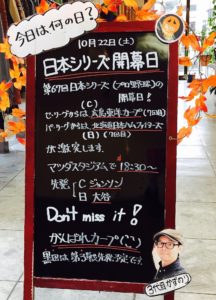 今日は何の日？
10月22日(土)
日本シリーズ開幕日
第67回日本シリーズ(プロ野球)の
開幕日！
(C)
セ・リーグからは、広島東洋カープ(7回目)
パ・リーグからは、北海道日本ハムファイターズ
(日)(7回目)
が激突します。
マツダスタジアムで18:30〜
先発 (C)ジョンソン
(日)大谷
Don't miss it！
がんばれカープ(^^)
黒田は第3戦先発予定です。
3代目かずのり